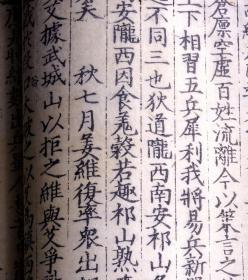 倉廩空虛百姓流離今以策言之
上下相習五兵犀利我將易兵新
不同三也狄道隴西南安祁山各
安隴西因食羌穀若趣祁山熟
矣 秋七月姜維復率眾出
艾據武城山以拒之維與艾爭